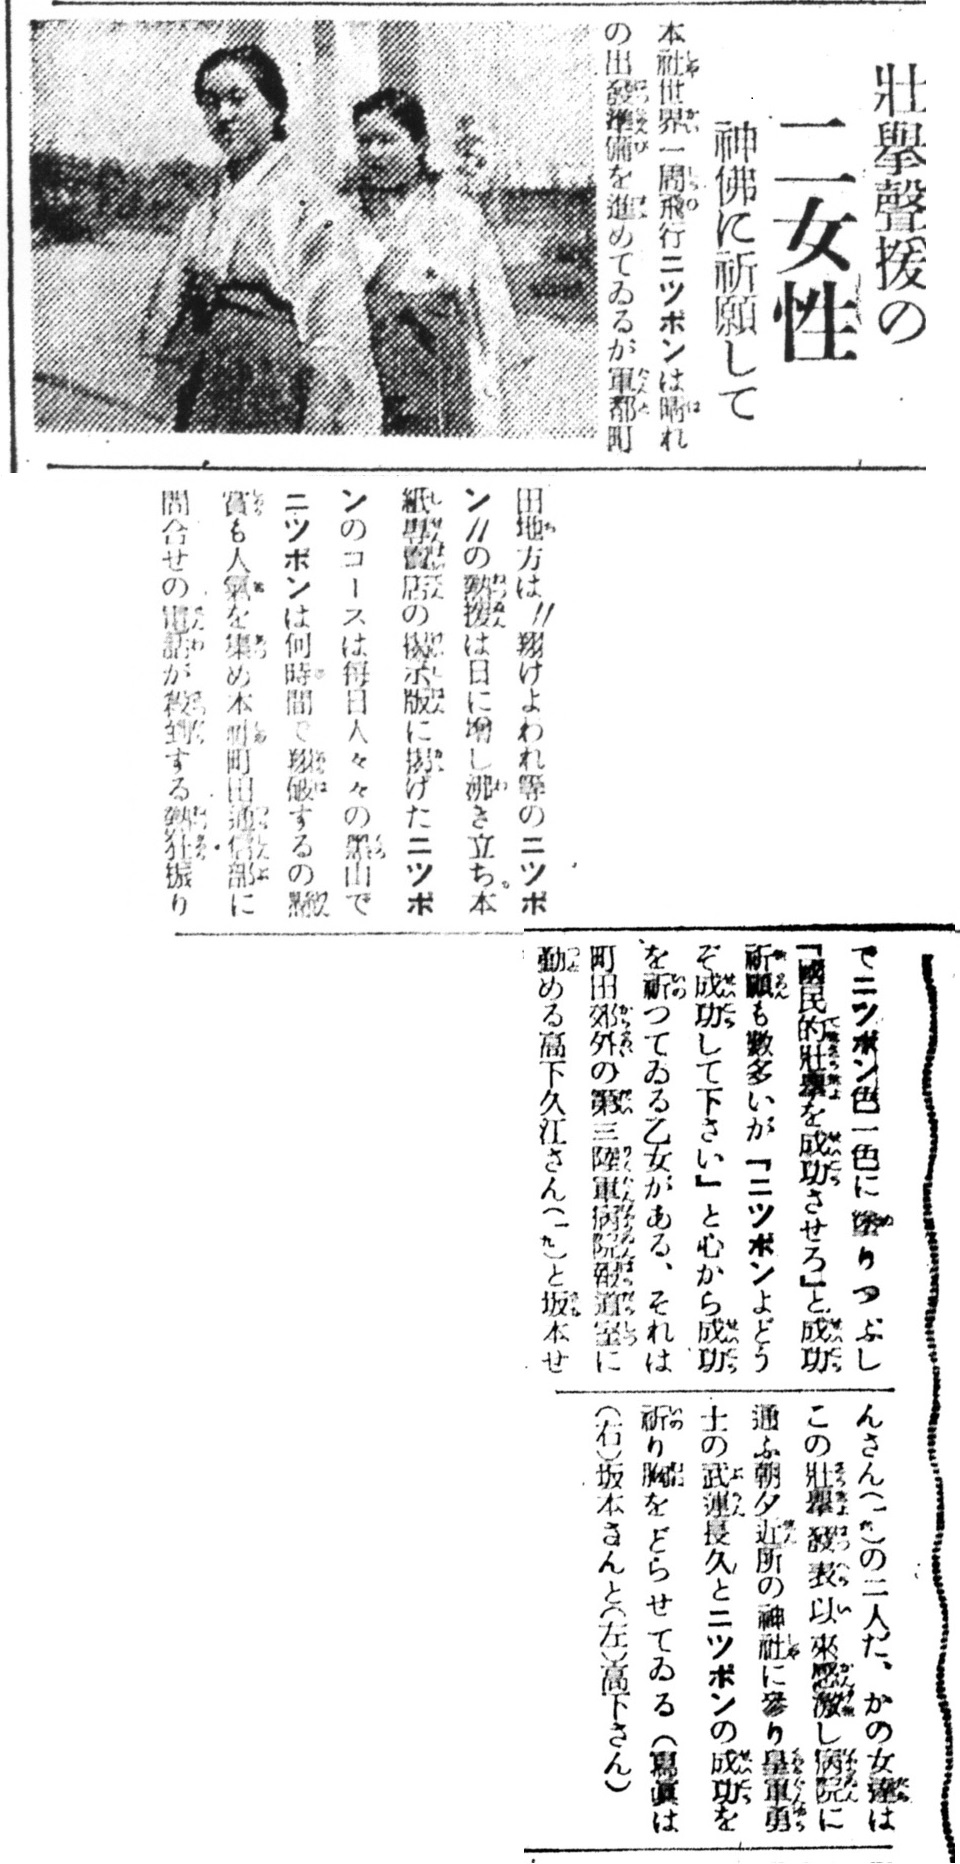 壯擧聲援の
二女性
神佛に祈願して
本社世界一周飛行ニツポンは晴れ
の出發準備を進めてゐるが軍都町
田地方は〃翔けよわれ等のニツポ
ン〃の熱援は日に增し沸き立ち。本
紙專賣店の揭示版に揭げたニツポ
ンのコースは每日人々々の黑山で
ニツポンは何時間で翔破するの懸
賞も人氣を集め本社町田通信部に
問合せの電話が殺到する熱狂振り
でニツポン色一色に塗りつぶし
『國民的壯擧を成功させろ』と成功
祈願も數多いが『ニツポンよどう
ぞ成功して下さい』と心から成功
を祈つてゐる乙女がある、それは
町田郊外の第三陸軍病院報道室に
勤める高下久江さん(一九)と坂本せ
んさん(一九)の二人だ、かの女達は
この壯擧發表以來感激し病院に
通ふ朝夕近所の神社に參り皇軍勇
士の武運長久とニツポンの成功を
祈り胸をどらせてゐる(寫眞は
(右)坂本さんと(左)高下さん)